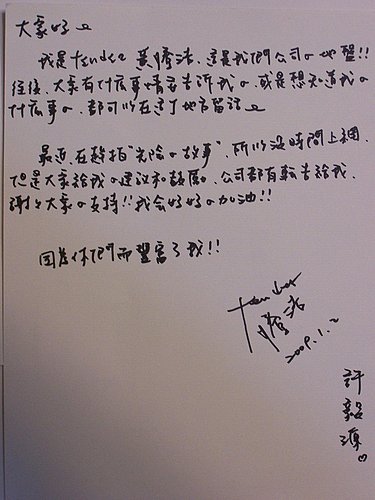 大家好
我是tender 黃騰浩，這是我們公司の地盤!!
往後，大家有什麼事情要告訴我の，或是想知道我の
什麼事の，都可以在這了地方留話
最近在趕拍"光陰の故事"，所以沒時間上網，
但是大家給我の建議和鼓勵，公司都有轉告給我，
謝謝大家の支持!!我會好好の加油!!
因為你們而豐富了我!!
tender
騰浩
2009.1.2
許
毅
源